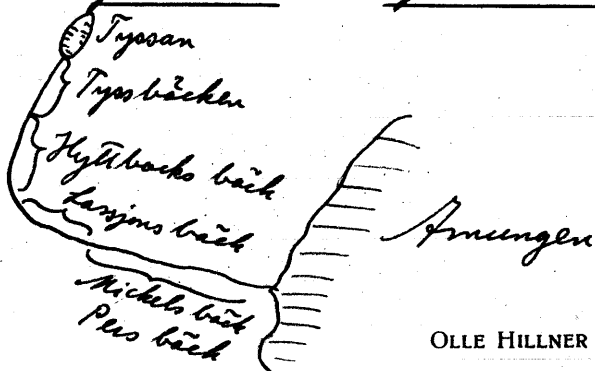 Tyssan
Tyssbäcken
Hyttbacks bäck
Lassjons bäck
Amungen
Mickels bäck
Pers bäck
OLLE HILLNER